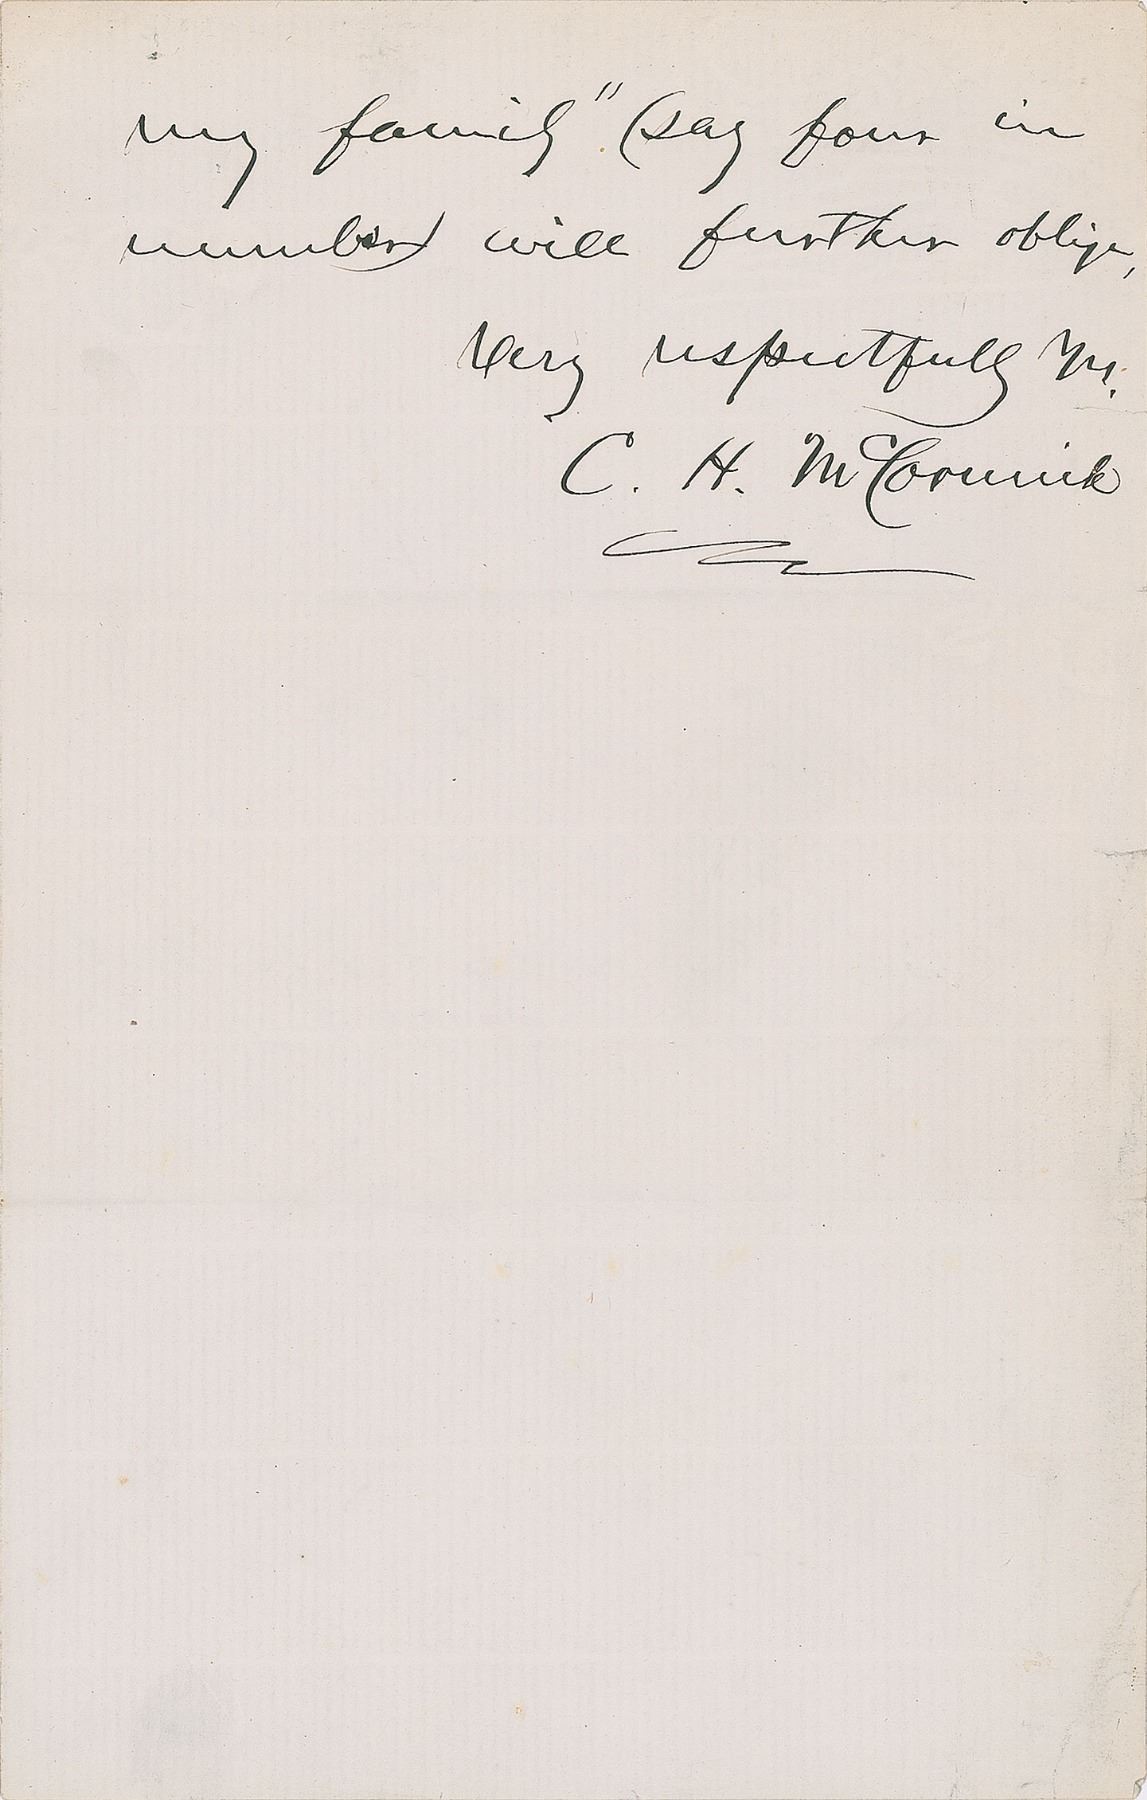 my family" (say four in
number) will further oblige,
Very respectfully Yrs.
C. H. McCormick